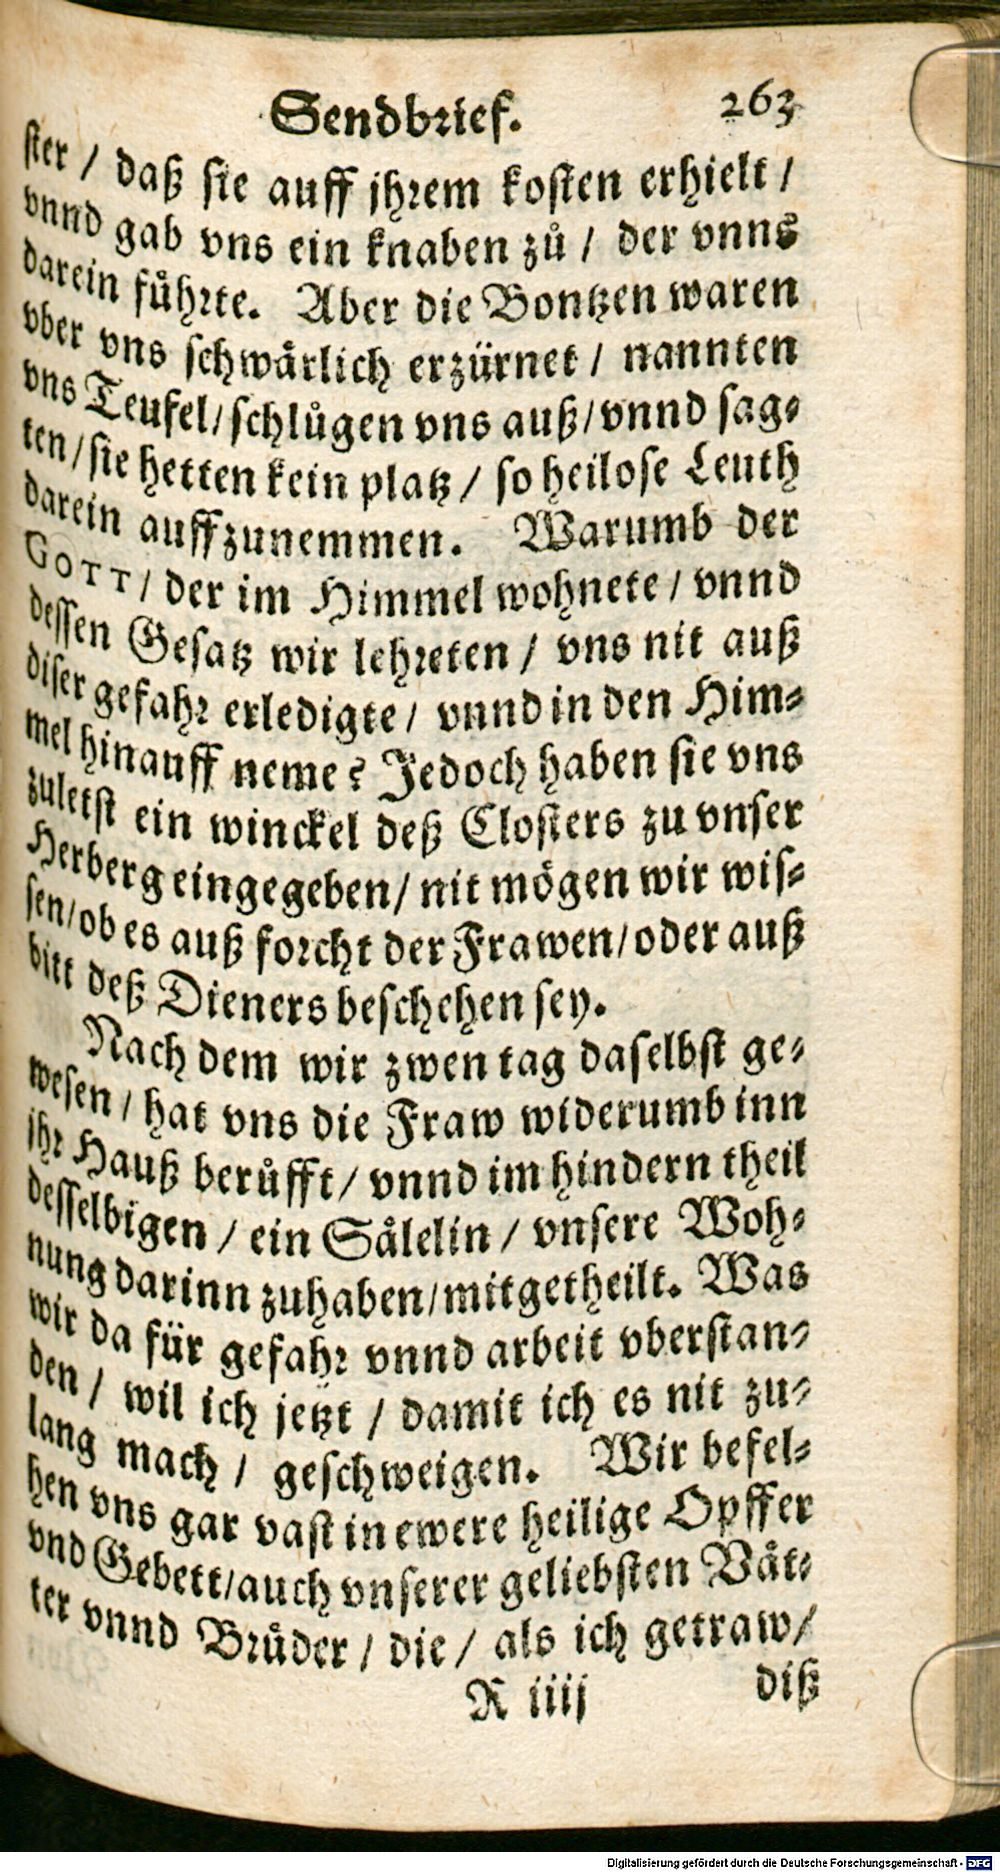 Sendbrief. 263
ster / daß sie auff jhrem kosten erhielt /
vnnd gab vns ein knaben zů / der vnns
darein fůhrte. Aber die Bontzen waren
vber vns schwårlich erzürnet / nannten
vns Teufel / schlůgen vns auß / vnnd sag-
ten / sie hetten kein platz / so heilose Leuth
darein auffzunemmen. Warumb der
GOTT / der im Himmel wohnete / vnnd
dessen Gesatz wir lehreten / vns nit auß
diser gefahr erledigte / vnnd in den Him-
mel hinauff neme? Jedoch haben sie vns
zuletst ein winckel deß Closters zu vnser
Herberg eingegeben / nit mögen wir wis-
sen / ob es auß forcht der Frawen / oder auß
bitt deß Dieners beschehen sey.
Nach dem wir zwen tag daselbst ge-
wesen / hat vns die Fraw widerumb inn
jhr Hauß berůfft / vnnd im hindern theil
desselbigen / ein Sålelin / vnsere Woh-
nung darinn zuhaben / mitgetheilt. Was
wir da für gefahr vnnd arbeit vberstan-
den / wil ich jetzt / damit ich es nit zu-
lang mach / geschweigen. Wir befel-
hen vns gar vast in ewere heilige Opffer
vnd Gebett / auch vnserer geliebsten Våt-
ter vnnd Brůder / die / als ich getraw /
R iiij diß
Digitalisierung gefördert durch die Deutsche Forschungsgemeinschaft - DFG